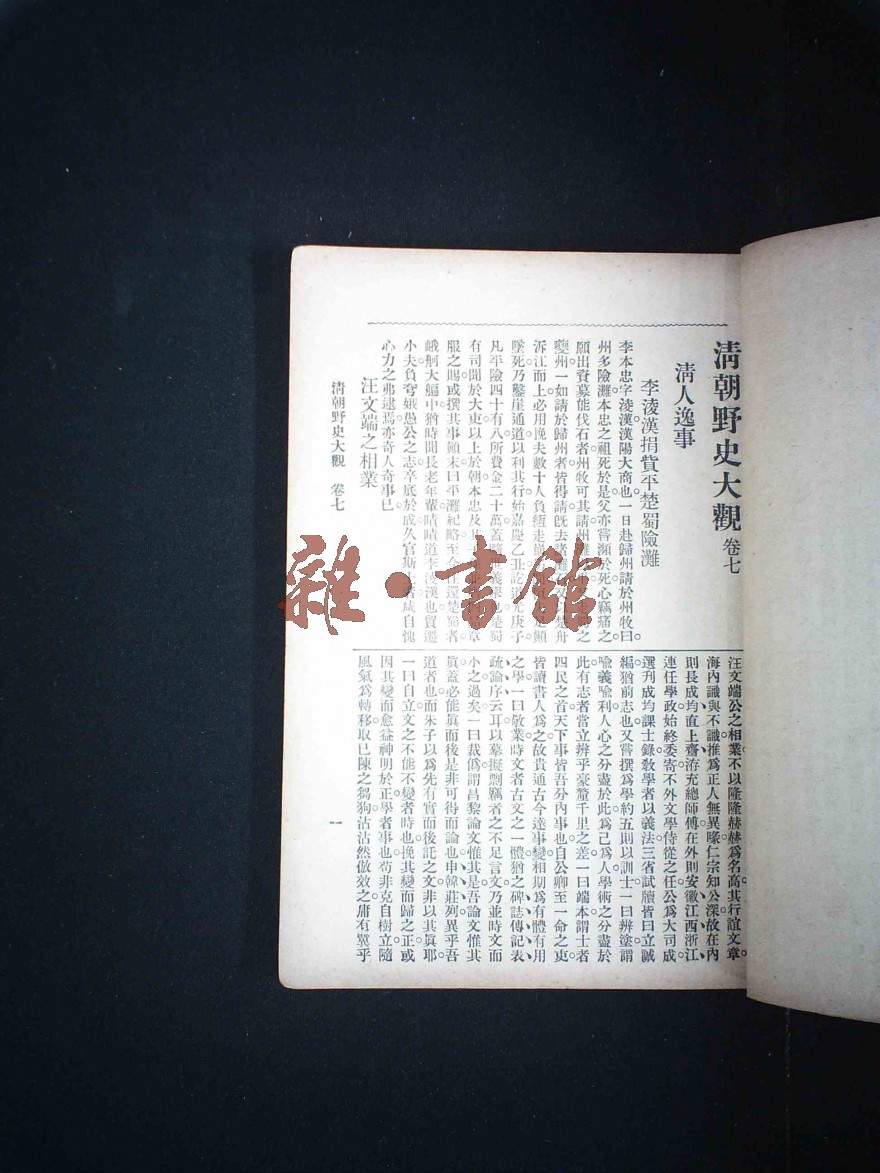 清朝野史大觀 卷七
清人逸事
李淩漢捐貲平楚蜀險灘
李本忠字淩漢漢陽大商也一日赴歸州請於州牧曰
州多險灘本忠之祖死於是父亦嘗瀕於死心竊痛之
願出貲募能伐石者州牧可其請州
夔州一如請於歸州者皆得請旣去諸 楚舟
泝江而上必用挽夫數十人負縆走 顚
墜死乃鑿崖通道以利其行始嘉慶乙丑訖道光庚子
凡平險四十有八所費金二十萬蓋 義舉也楚蜀
有司聞於大吏以上於朝本忠及其 章
服之賜或撰其事顚末曰平灘紀略至今往還楚蜀者
峨舸大艑中猶時聞長老年輩嘖嘖道李淩漢也賈遷
小夫負夸娥愚公之志卒底於成久官斯 者咸自愧
心力之弗逮焉亦奇人奇事已
汪文端之相業
汪文端公之相業不以隆隆赫赫爲名高其行誼文章
海內識與不識推爲正人無異喙仁宗知公深故在內
則長成均直上齋洊充總師傅在外則安徽江西浙江
連任學政始終委寄不外文學侍從之任公爲大司成
選刋成均課士錄敎學者以義法三省試牘皆曰立誠
編猶前志也又嘗撰爲學約五則以訓士一曰辨塗謂
喩義喩利人心之分盡於此爲己爲人學術之分盡於
此有志者當立辨乎豪釐千里之差一曰端本謂士者
四民之首天下事皆吾分內事也自公卿至一命之吏
皆讀書人爲之故貴通古今達事變相期爲有體有用
之學一曰敬業時文者古文之一體猶之碑誌傳記表
疏論序云耳以摹擬剽竊者之不足言文乃並時文而
小之過矣一曰裁僞謂昌黎論文惟其是吾論文惟其
眞蓋必能眞而後是非可得而論也申韓莊列異乎吾
道者也而朱子以爲先有實而後託之文非以其眞耶
一曰自立文之不能不變者時也挽其變而歸之正或
因其變而愈益神明於正學者事也苟非克自樹立隨
風氣爲轉移取已陳之芻狗沾沾然倣效之庸有冀乎
清朝野史大觀 卷七
一
雜·書館